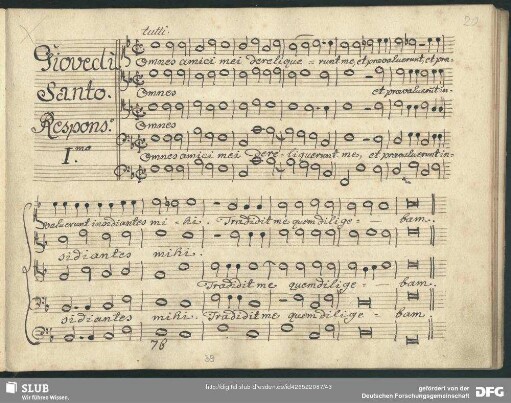 20
tutti.
Giovedi
Santo.
Respons.º
I.mo
Omnes amici mei dereliquerunt me, et praevaluerunt, et prae-
Omnes et praevaluerunt in-
Omnes
Omnes amici mei Dere-liquerunt me, et praevaluerunt in-
valuerunt insidiantes mi-hi. Tradidit me quem dilige-bam.
sidiantes mihi.
Tradidit me quem dilige-bam.
sidiantes mihi. Tradidit me quem dilige-bam.
76
39
SLUB
Wir führen Wissen.
gefördert von der
Deutschen Forschungsgemeinschaft
DFG